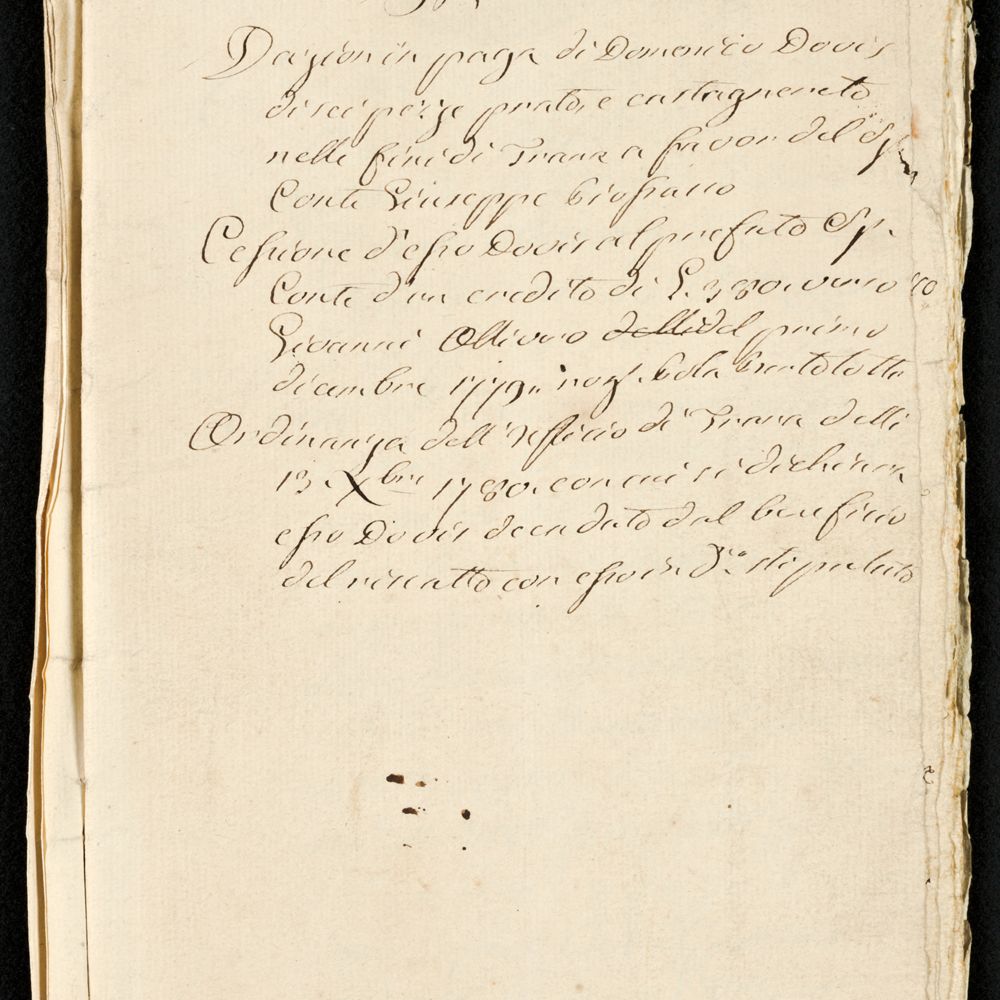 Dazion in paga di Domenico Dovis
di sei pezze prato, e castagnereto
nelle fini di Trana a favor del Sr.
Conte Giuseppe
Cessione d'esso Dovis al prefato Sr.
Conte d'un credito di L. 380. verso
Giovanni Ollivero delli del primo
dicembre 1779. rog.
Ordinanza dell'Ufficio di Trana delli
13. Xbre 1780. con cui si dichiara
esso Dovis decaduto dal beneficio
del riscatto con esso in d.o stipulato